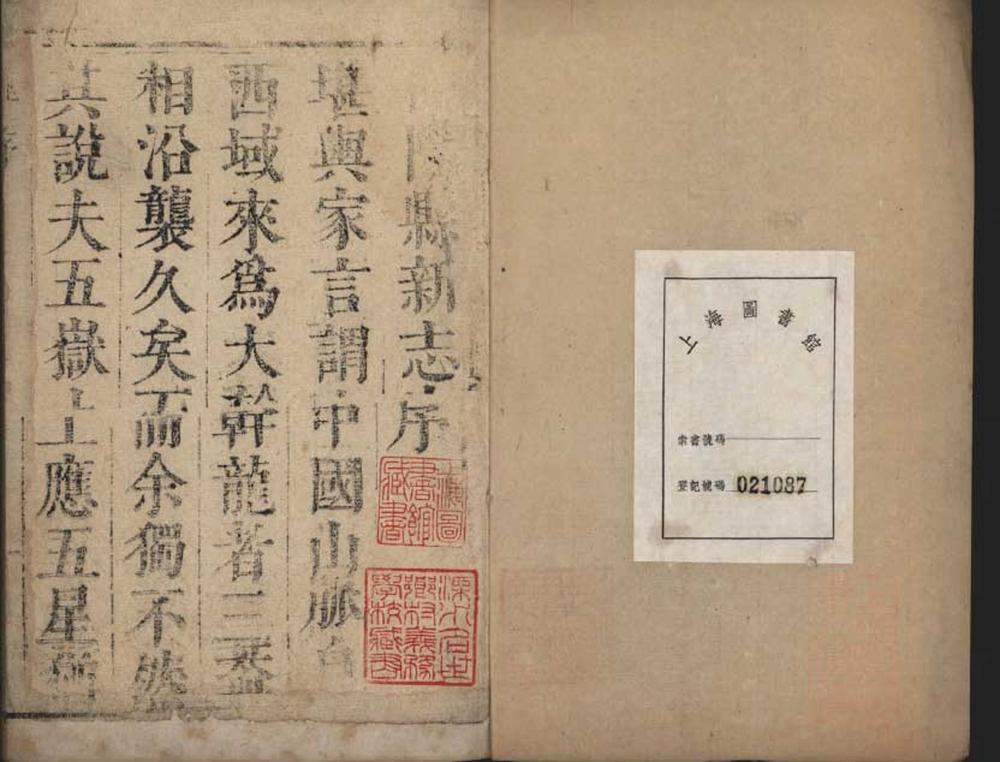 陰縣新志序
堪輿家言謂中國山脈自
西域來爲大幹龍者三蓋
相沿襲久矣而余獨不然
其說夫五嶽上應五星
圖書館
藏書
上海圖書館
索書號碼
登記號碼 021087